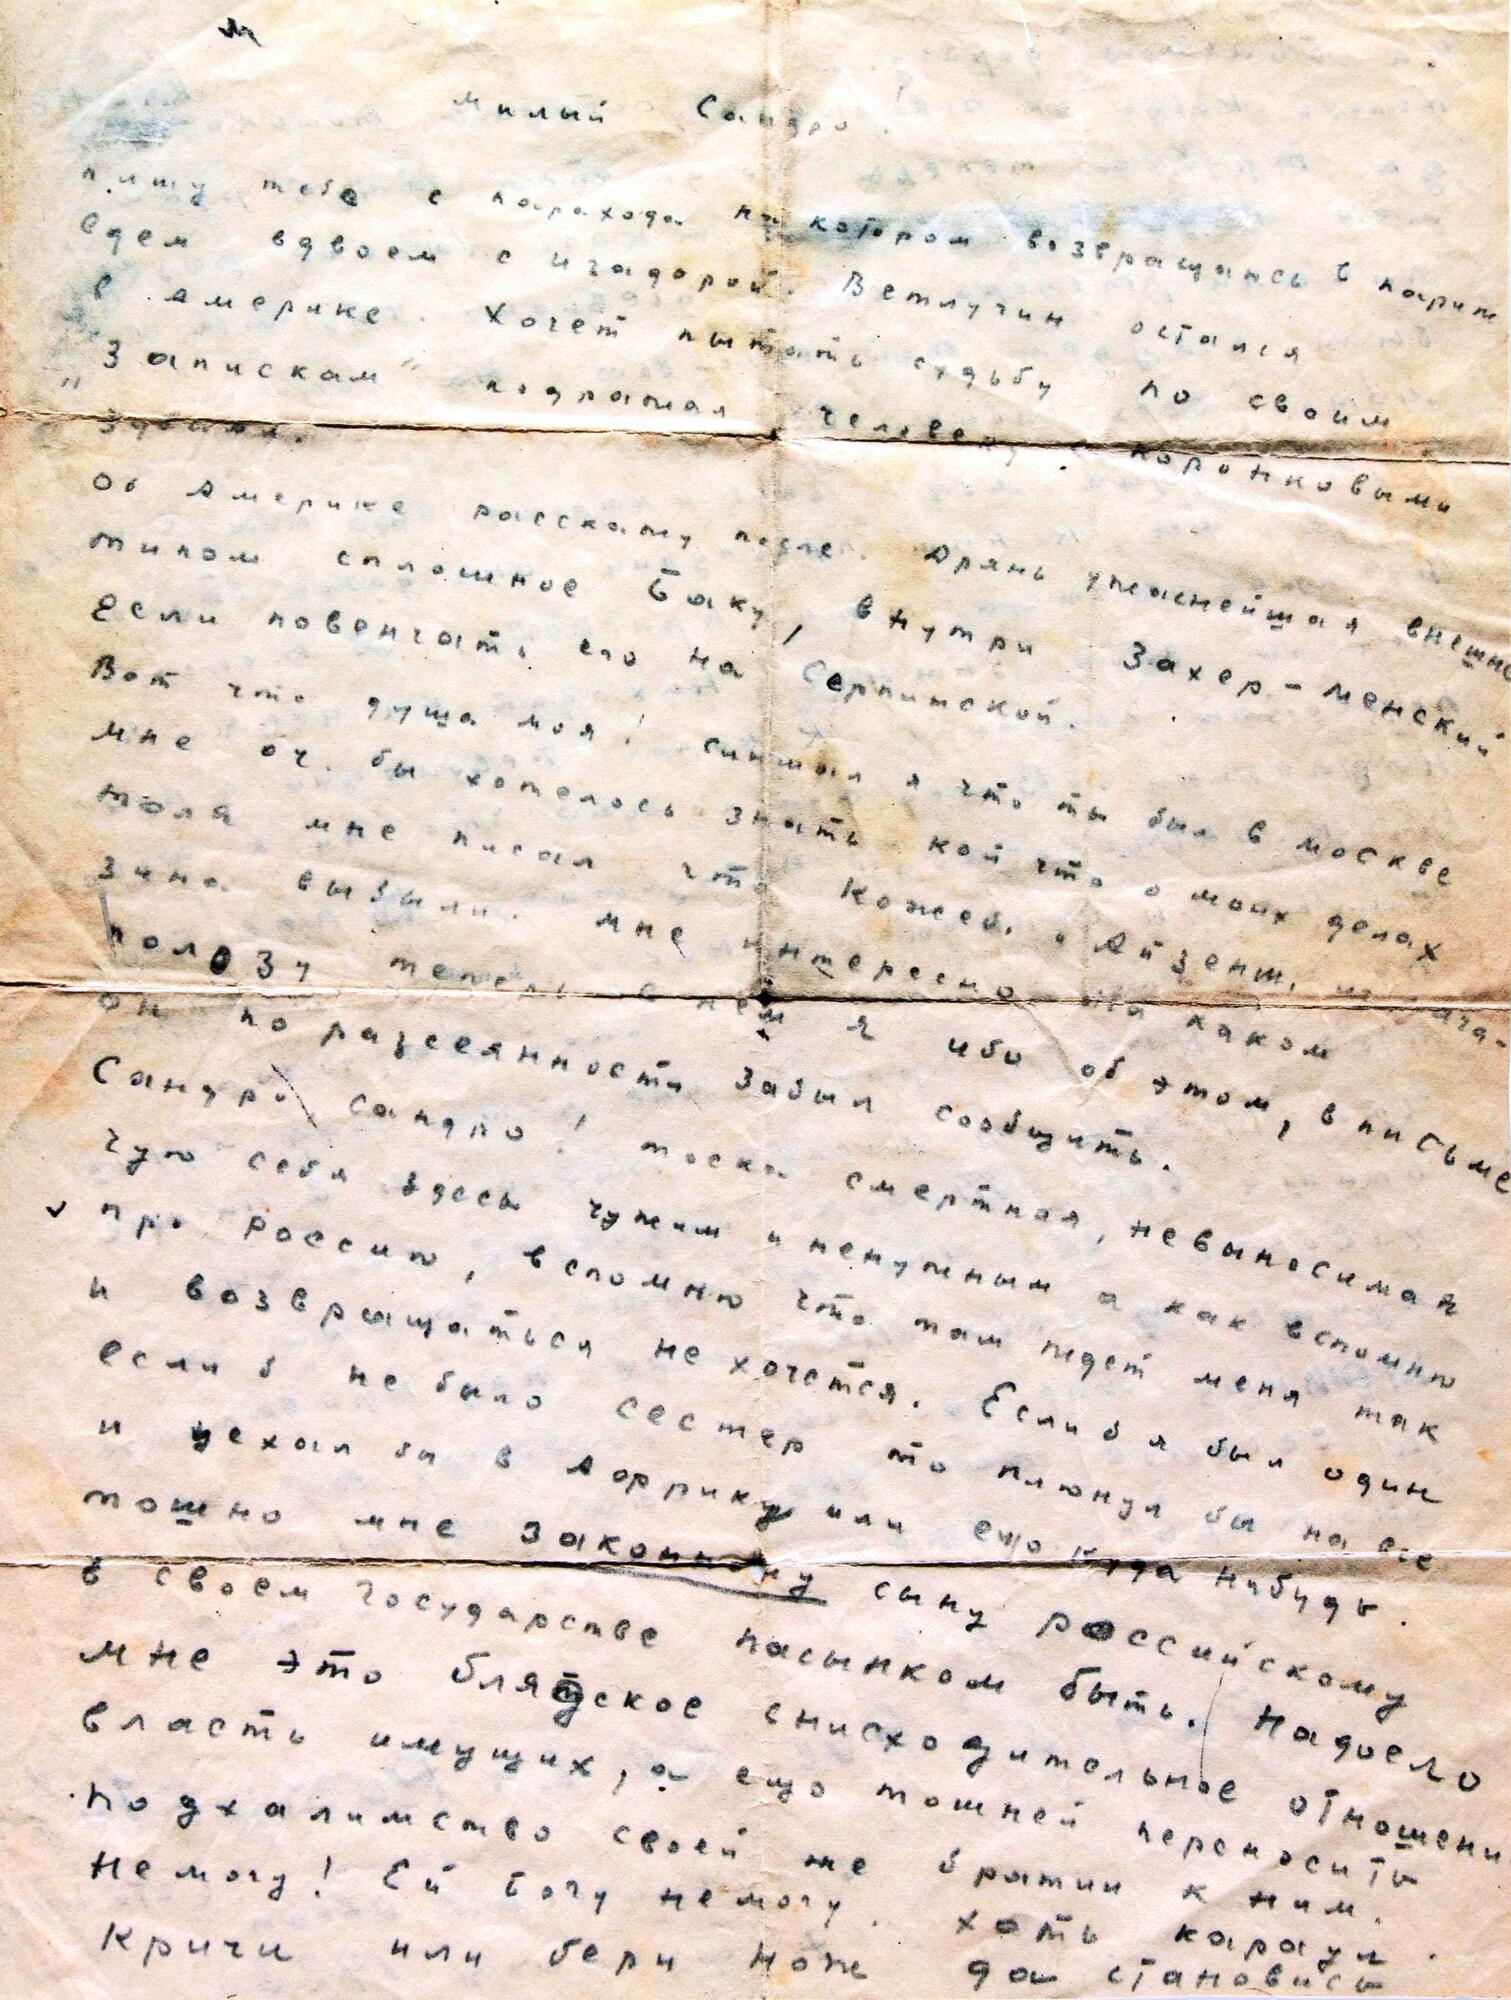 милый Сандро!
пишу тебе с парахода на котором возвращаюсь в париж
едем вдвоем с Изадорой. Ветлугин остался
в Америке. Хочет пытать судьбу по своим
„Запискам" подражая человеку с коронковыми
здами.
Об Америке расскажу после. Дрянь ужаснейшая внешне
типом сплошное Баку, внутри Захер-менский
если повенчать его на Серпинской.
Вот что душа моя! слышал я что ты был в москве
мне оч. бы хотелось знать кой что о моих делах
Толя мне писал что Кожеб. и Айзенш. из мага-
зина выбыли. мне интересно на каком
полозу теперь в нем я ибо об этом, в письме
он по разсеянности забыл сообщить.
Сандро сандро! тоска смертная, невыносимая
чую себя здесь чужим и ненужным а как вспомню
про Россию, вспомню что там ждет меня так
и возвращаться не хочется. Если б я был один
если б не было сестер то плюнул бы на все
и уехал бы в Африку или ещо куда нибудь.
тошно мне законному сыну российскому
в своем государстве пасынком быть. Надоело
мне это блядское снисходительное отношени
власть имущих, а ещо тошней переносить
подхалимство своей же братии к ним.
Не могу! Ей Богу не могу. хоть караул
кричи или бери нож да становись